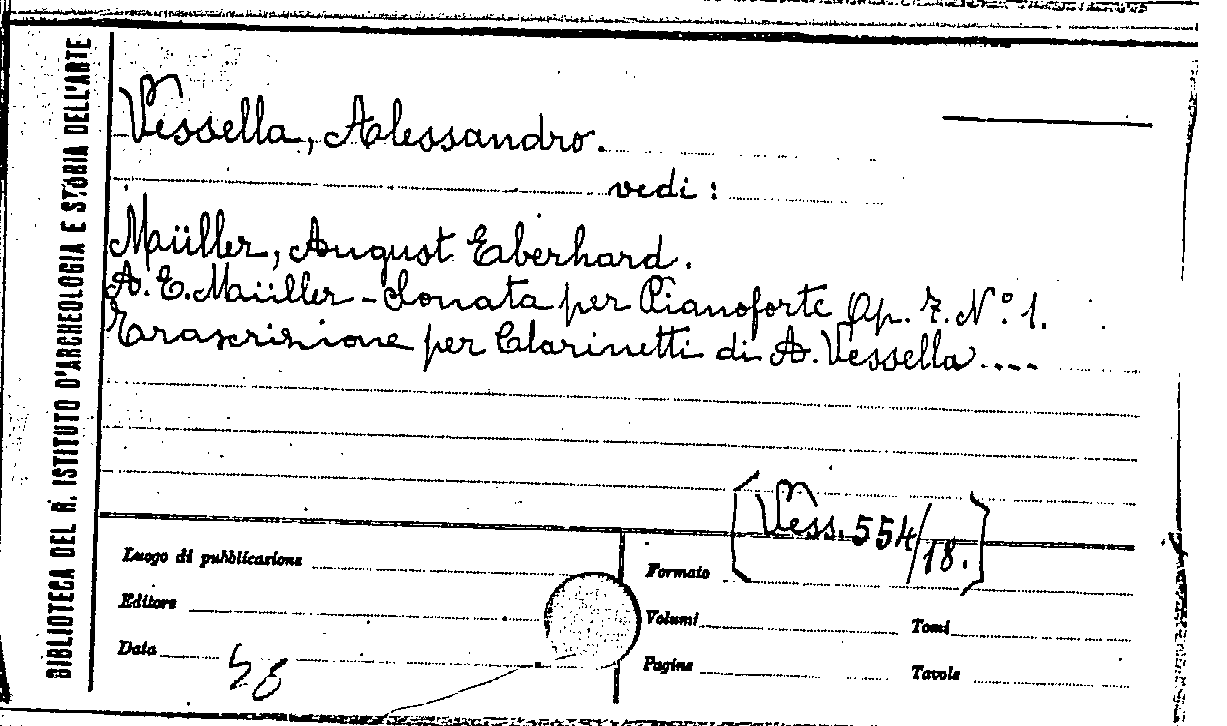 BIBLIOTECA DEL R. ISTITUTO D'ARCHEOLOGIA E STORIA DELL'ARTE
Vessella, Alessandro.
vedi :
Maüller, August Eberhard.
A. E. Maüller - Sonata per Pianoforte Op. 7. N° 1.
Trascrizione per Clarinetti di A. Vessella ....
[Vess. 554/18.]
Luogo di pubblicazione
Formato
Editore
Volumi
Tomi
Data
Pagine
Tavole